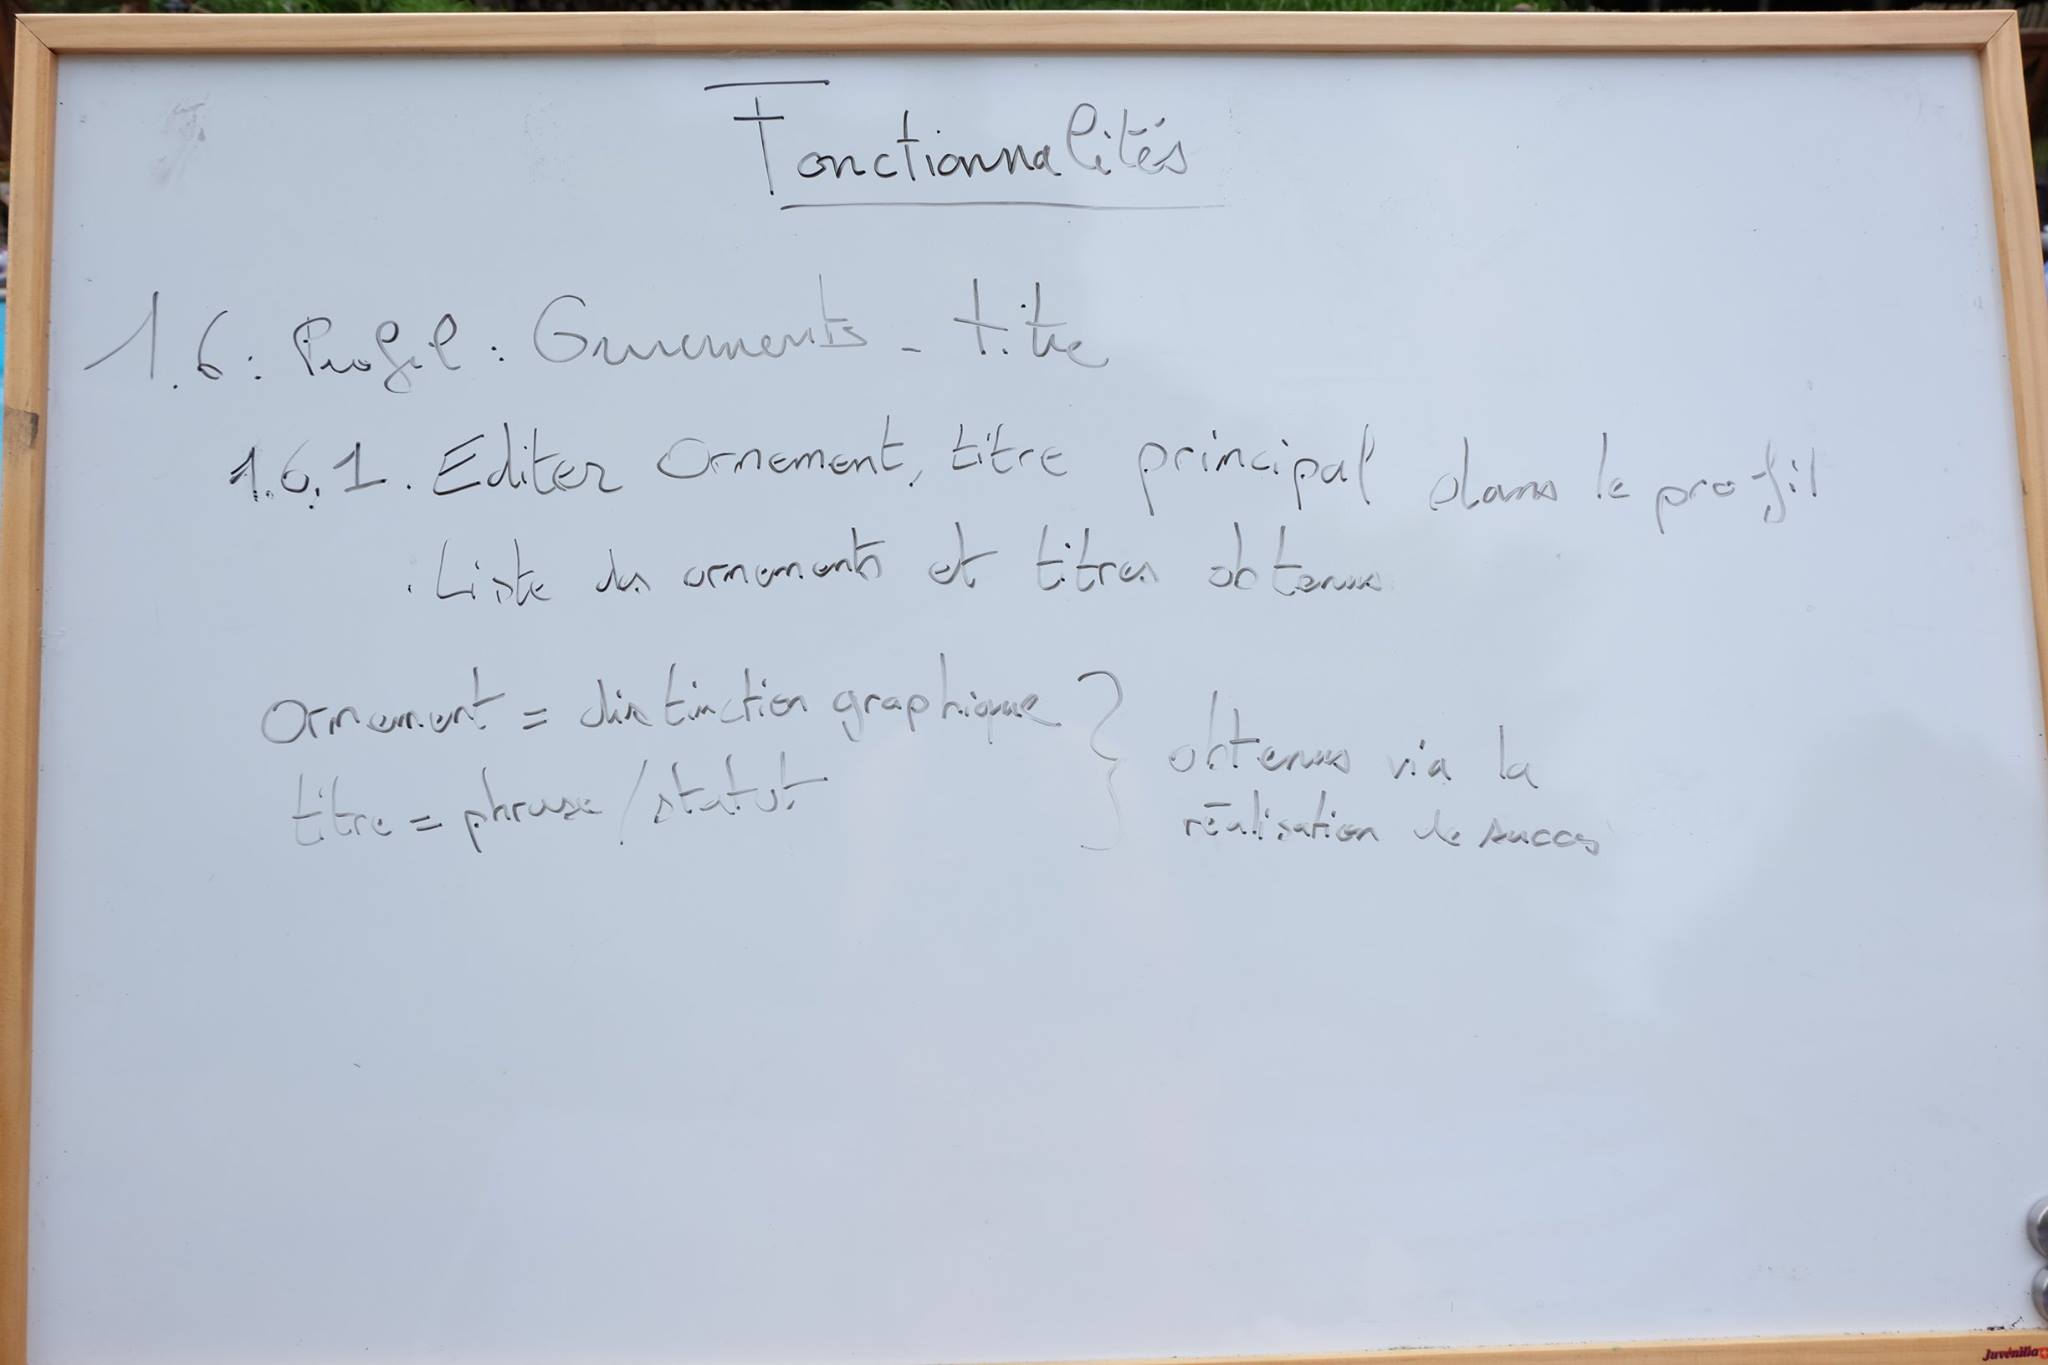 Fonctionnalités
1.6 : Profil : Ornements - titre
1.6.1. Editer Ornement, titre principal dans le profil
. Liste des ornements et titres obtenus
Ornement = distinction graphique } obtenus via la
titre = phrase / statut } réalisation de succes
Juvénilia